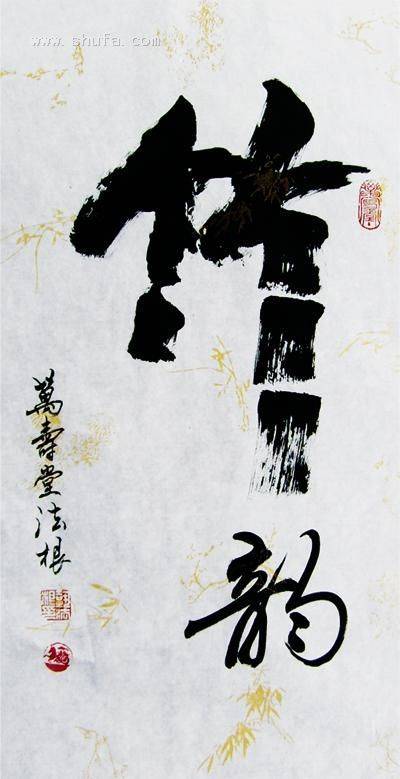 www.shufa.com
竹韵
萬壽堂法根